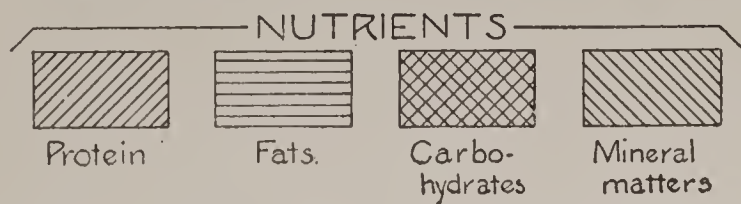 NUTRIENTS
Protein
Fats.
Carbo-
hydrates
Mineral
matters